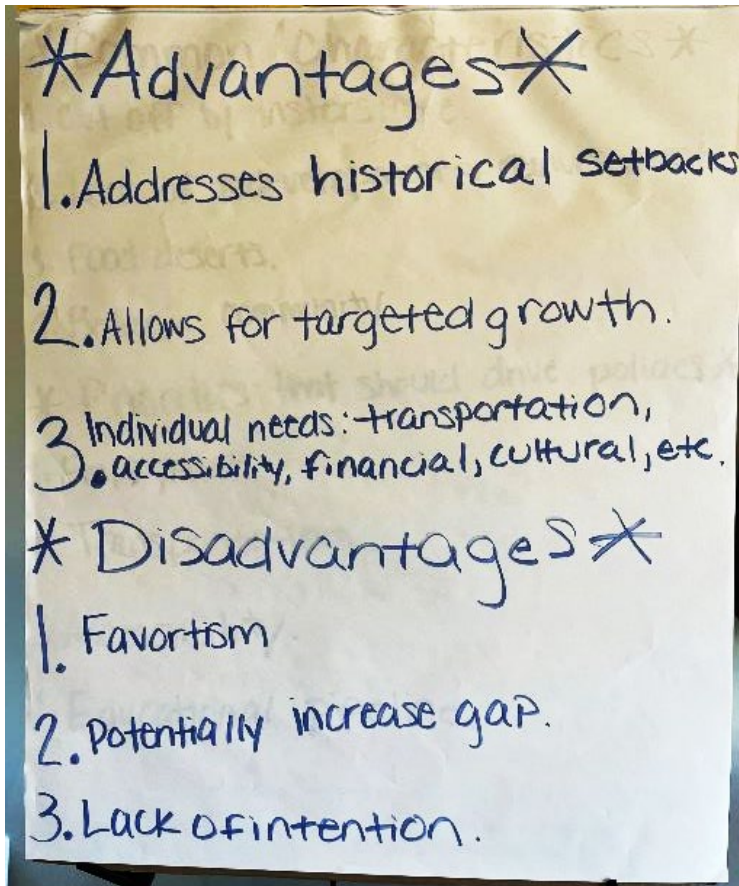 *Advantages*
1. Addresses historical setbacks
2. Allows for targeted growth.
3. Individual needs: transportation,
accessibility, financial, cultural, etc.
* Disadvantages *
1. Favortism
2. Potentially increase gap.
3. Lack of intention.